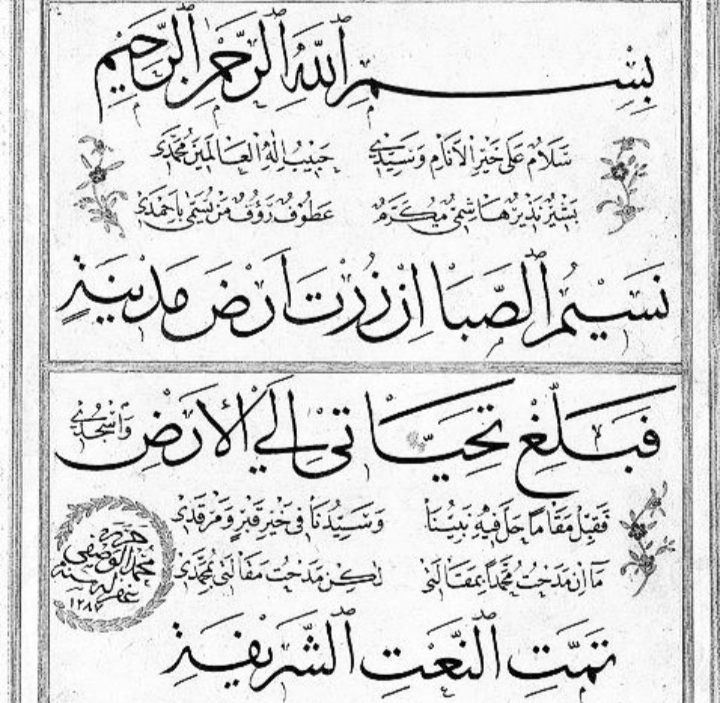 بِسْمِ اللّٰهِ الرَّحْمٰنِ الرَّحِيمِ
سَلَامٌ عَلَى خَيْرِ الْأَنَامِ وَسَيِّدِي حَبِيبِ إِلٰهِ الْعَالَمِينَ مُحَمَّدِي
بَشِيرٌ نَذِيرٌ هَاشِمِيٌّ مُكَرَّمٌ عَطُوفٌ رَؤُفٌ مَنْ يُسَمَّى بِاَحْمَدِي
نَسِيمُ الصَّبَا اِنْ زُرْتَ اَرْضَ مَدِينَةٍ
فَبَلِّغْ تَحِيَّاتِي إِلَى الْأَرْضِ وَاسْجُدِي
فَقَبِّلْ مَقَامًا حَلَّ فِيهِ نَبِيُّنَا وَسَيِّدُنَا فِي خَيْرِ قَبْرٍ وَمَرْقَدِي
مَا اِنْ مَدَحْتُ مُحَمَّداً بِمَقَالَتِي لٰكِنْ مَدَحْتُ مَقَالَتِي بِمُحَمَّدِي
حرره
محمد الوصفي
غفر له سنة
١٢٨٤
تَمَّتِ النَّعْتِ الشَّرِيفَةِ